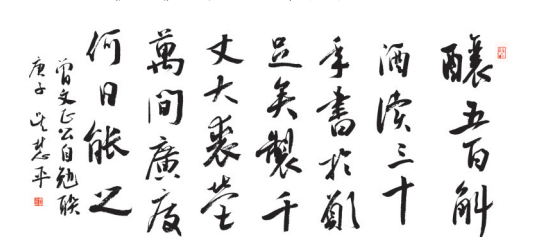 釀五百斛
酒讀三十
年書於願
足矣製千
丈大裘營
萬間廣廈
何日能之
曾文正公自勉聯
庚子 吳慧平